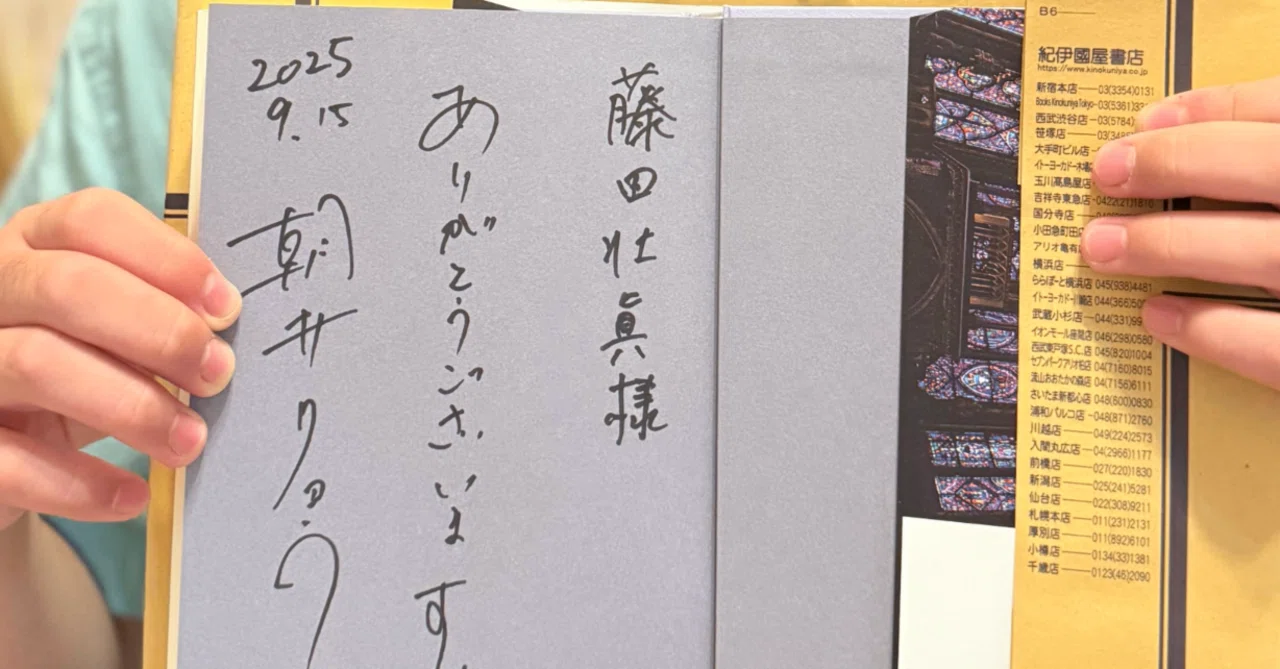 藤田壮眞様
ありがとうございます
2025
9.15
朝井リョウ
B6
紀伊國屋書店
https://www.kinokuniya.co.jp
新宿本店――03(3354)0131
Books Kinokuniya Tokyo―03(5361)
西武渋谷店―03(5784)
笹塚店――03
大手町ビル店
イトーヨーカドー木場店
玉川髙島屋店
吉祥寺東急店―0422(21)
国分寺店
小田急町田店
アリオ亀有店
横浜店
ららぽーと横浜店 045(938)4481
イトーヨーカドー川崎店 044(366)
武蔵小杉店――044(331)
イオンモール座間店 046(298)0580
西武東戸塚S.C.店 045(820)1004
セブンパークアリオ柏店 04(7160)8015
流山おおたかの森店 04(7156)6111
さいたま新都心店 048(600)0830
浦和パルコ店―048(871)2760
川越店――049(224)2573
入間丸広店―04(2966)1177
前橋店――027(220)1830
新潟店――025(241)5281
仙台店――022(308)9211
札幌本店――011(231)2131
厚別店――011(892)6101
小樽店――0134(33)1381
千歳店――0123(46)2090